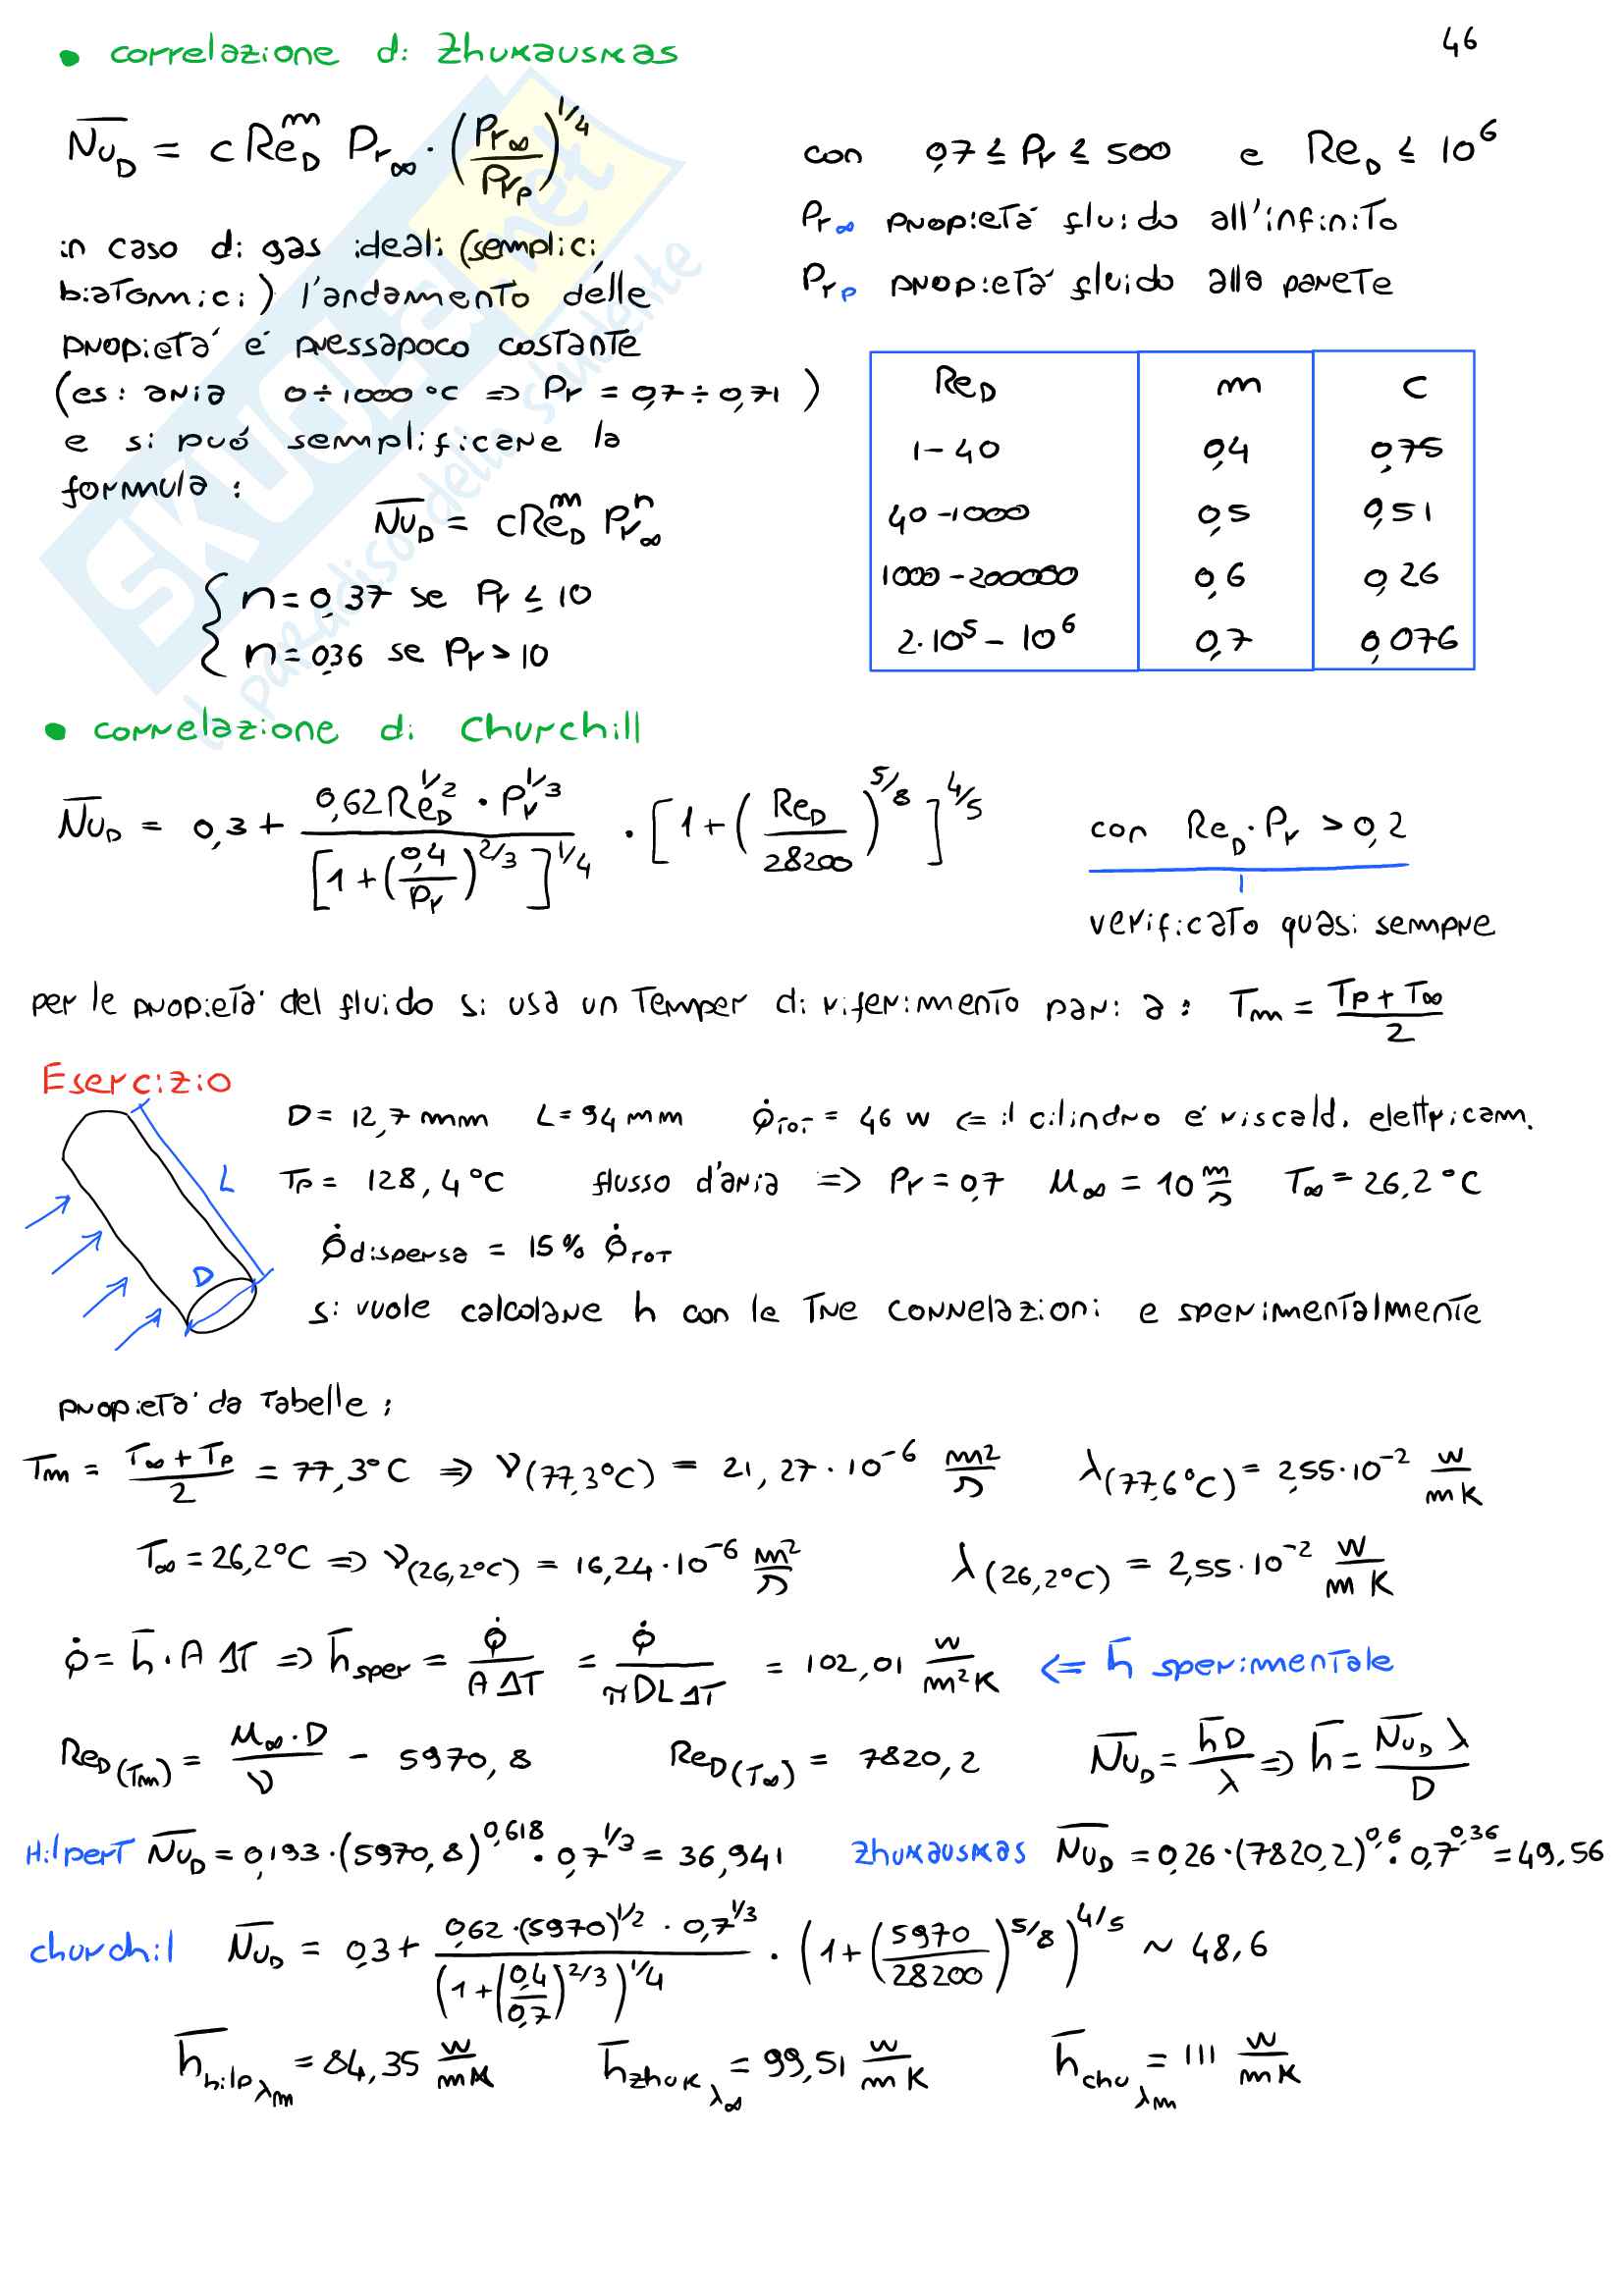 46
• correlazione di Zhukauskas
N̅u̅_D = c Re_D^m Pr_∞ · (Pr_∞/Pr_p)^1/4
con 0,7 ≤ Pr ≤ 500 e Re_D ≤ 10^6
Pr_∞ proprietá fluido all'infinito
Pr_p proprietá fluido alla parete
in caso di gas ideali (semplici,
biatomici) l'andamento delle
propietá é pressapoco costante
(es: aria 0÷1000 °C => Pr = 0,7÷0,71)
e si puó semplificare la
formula:
N̅u̅_D = c Re_D^m Pr_∞^n
{ n = 0,37 se Pr ≤ 10
n = 0,36 se Pr > 10
Re_D m c
1-40 0,4 0,75
40-1000 0,5 0,51
1000-200000 0,6 0,26
2·10^5 - 10^6 0,7 0,076
• correlazione di Churchill
N̅u̅_D = 0,3 + 0,62 Re_D^1/2 · Pr^1/3 / [1+(0,4/Pr)^2/3]^1/4 · [1+(Re_D/28200)^5/8]^4/5
con Re_D · Pr > 0,2
verificato quasi sempre
per le propietá del fluido si usa un Temper di riferimento pari a: Tm = (Tp + T∞)/2
Esercizio
D = 12,7 mm L = 94 mm φ̇_TOT = 46 W <= il cilindro é riscald. elettricam.
Tp = 128,4 °C flusso d'aria => Pr = 0,7 M_∞ = 10 m/s T∞ = 26,2 °C
φ̇ dispersa = 15% φ̇_TOT
si vuole calcolare h con le tre correlazioni e sperimentalmente
L
D
propietá da Tabelle:
Tm = (T∞ + Tp)/2 = 77,3°C => ν(77,3°C) = 21,27·10^-6 m²/s λ(77,6°C) = 2,55·10^-2 W/mK
T∞ = 26,2°C => ν(26,2°C) = 16,24·10^-6 m²/s λ(26,2°C) = 2,55·10^-2 W/mK
φ̇ = h̅·A ΔT => h̅_sper = φ̇/(A ΔT) = φ̇/(πDL ΔT) = 102,01 W/m²K <= h̅ sperimentale
Re_D(Tm) = M_∞·D/ν - 5970,8 Re_D(T∞) = 7820,2 N̅u̅_D = h̅D/λ => h̅ = N̅u̅_D λ/D
Hilpert N̅u̅_D = 0,193·(5970,8)^0,618 · 0,7^1/3 = 36,941 Zhukauskas N̅u̅_D = 0,26·(7820,2)^0,6 · 0,7^0,36 = 49,56
churchil N̅u̅_D = 0,3 + 0,62·(5970)^1/2 · 0,7^1/3 / (1+(0,4/0,7)^2/3)^1/4 · (1+(5970/28200)^5/8)^4/5 ~ 48,6
h̅_hilp λm = 84,35 W/mK h̅_zhuk λ∞ = 99,51 W/mK h̅_chu λm = 111 W/mK
SKUOLa.net
il paradiso dello studente